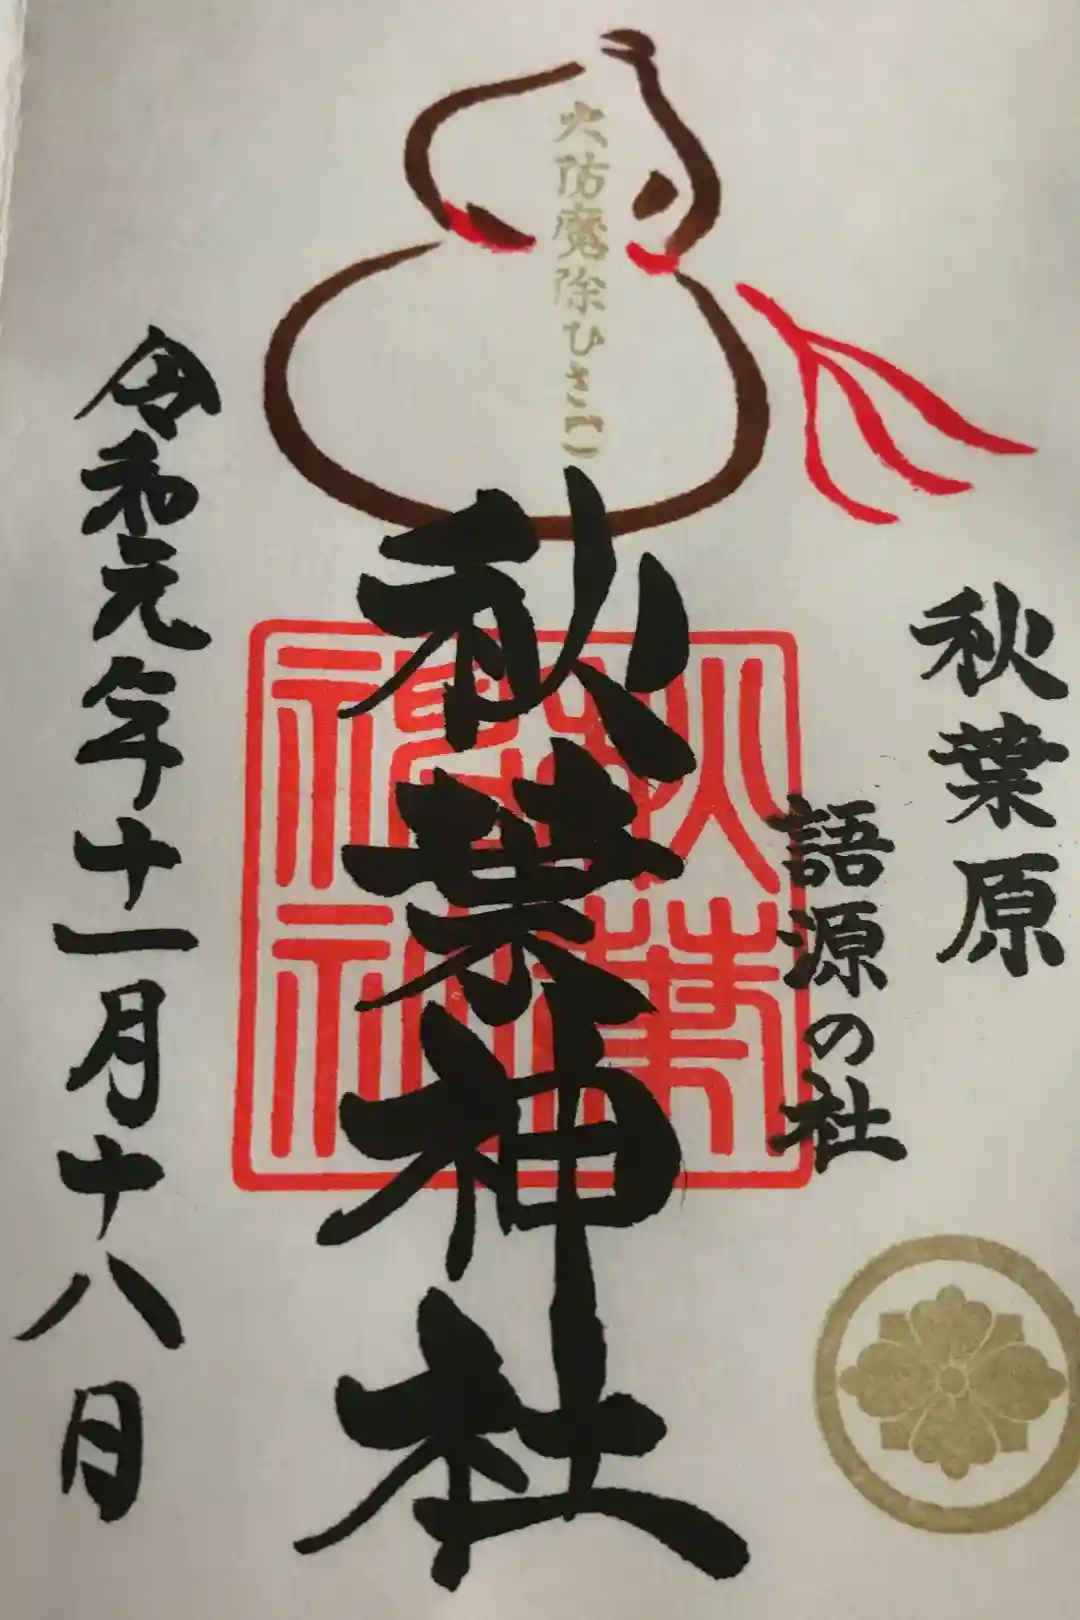 火防魔除ひさご
秋葉原
語源の社
秋葉神社
秋葉
神社
令和元年十一月十八日